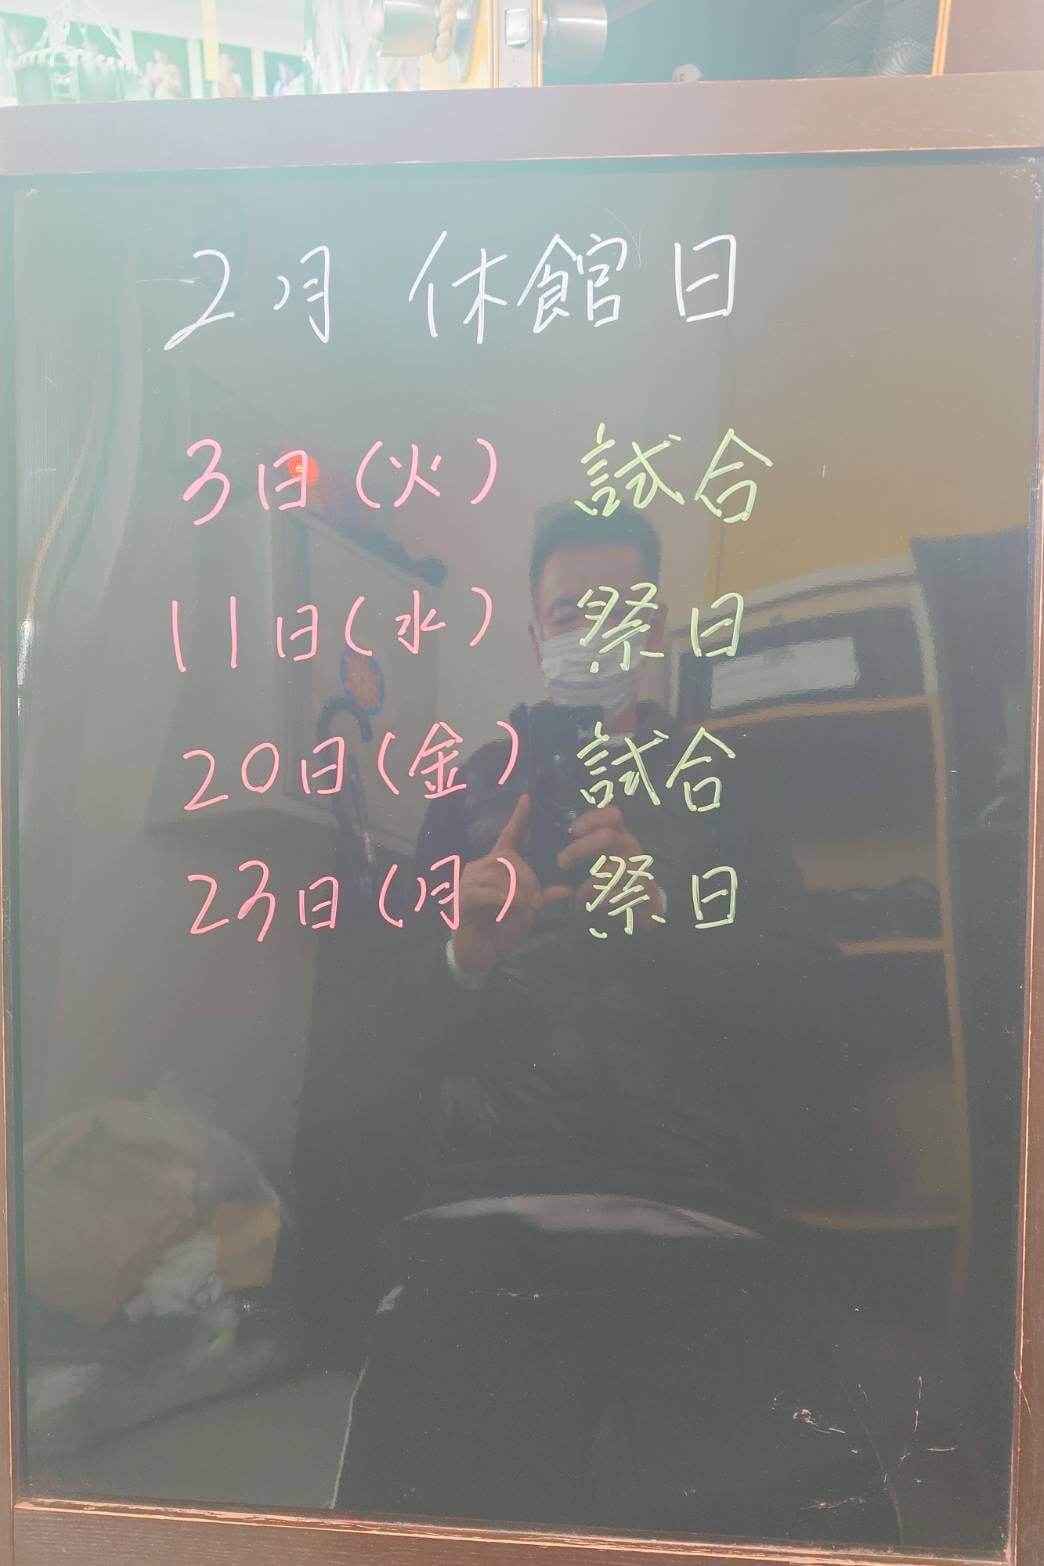 2月 休館日
3日(火) 試合
11日(水) 祭日
20日(金) 試合
23日(月) 祭日